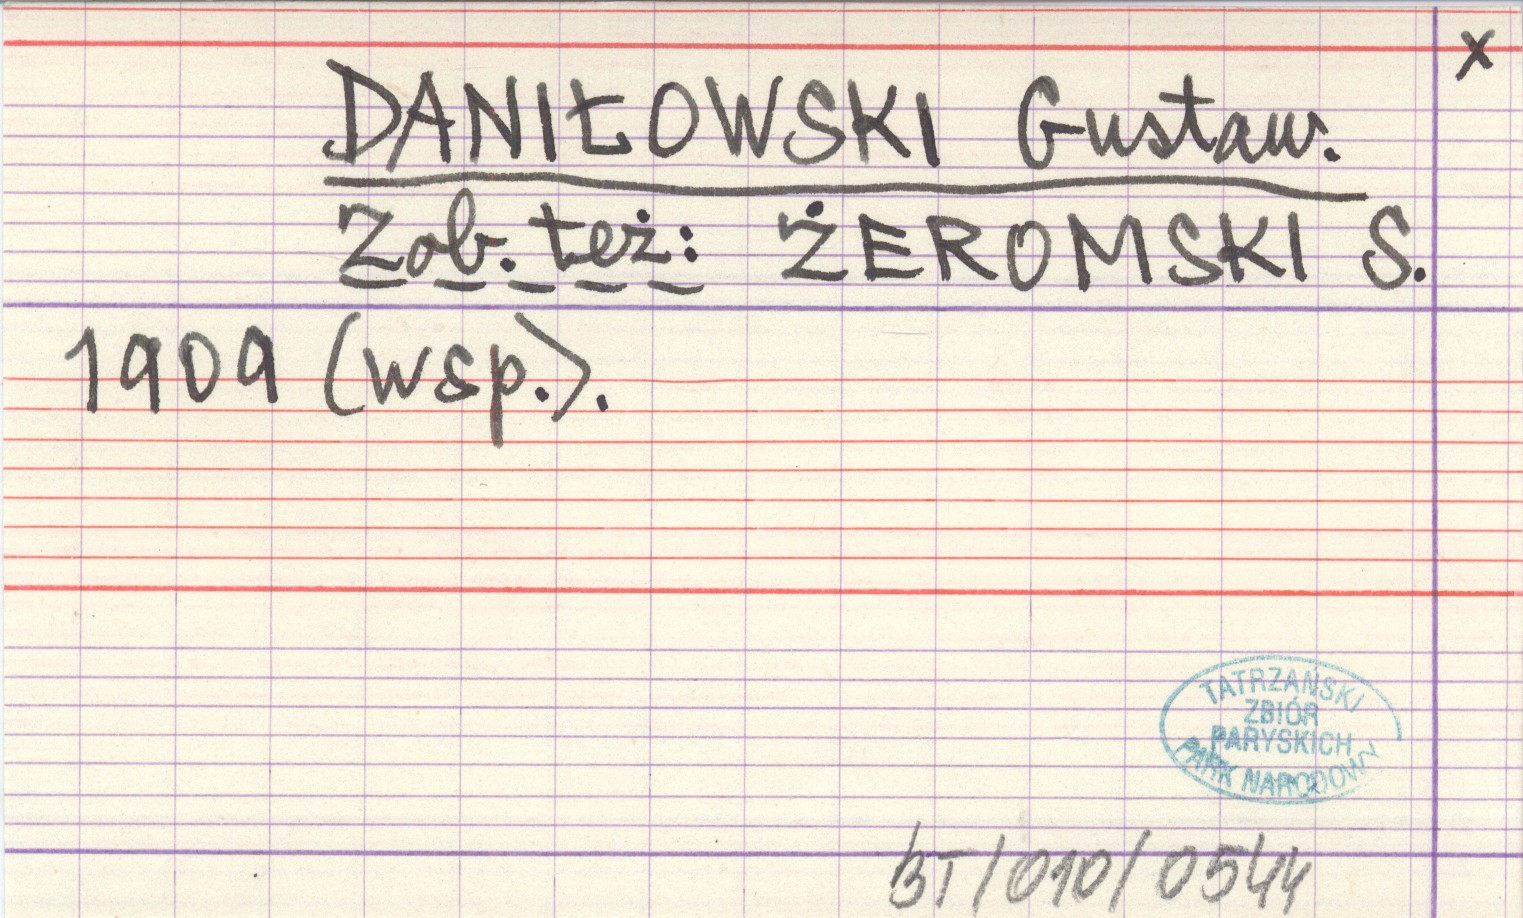 x
DANIŁOWSKI Gustaw.
Zob. też: ŻEROMSKI S.
1909 (wsp.).
TATRZAŃSKI
ZBIÓR
PARYSKICH
PARK NARODOWY
BT/010/0544